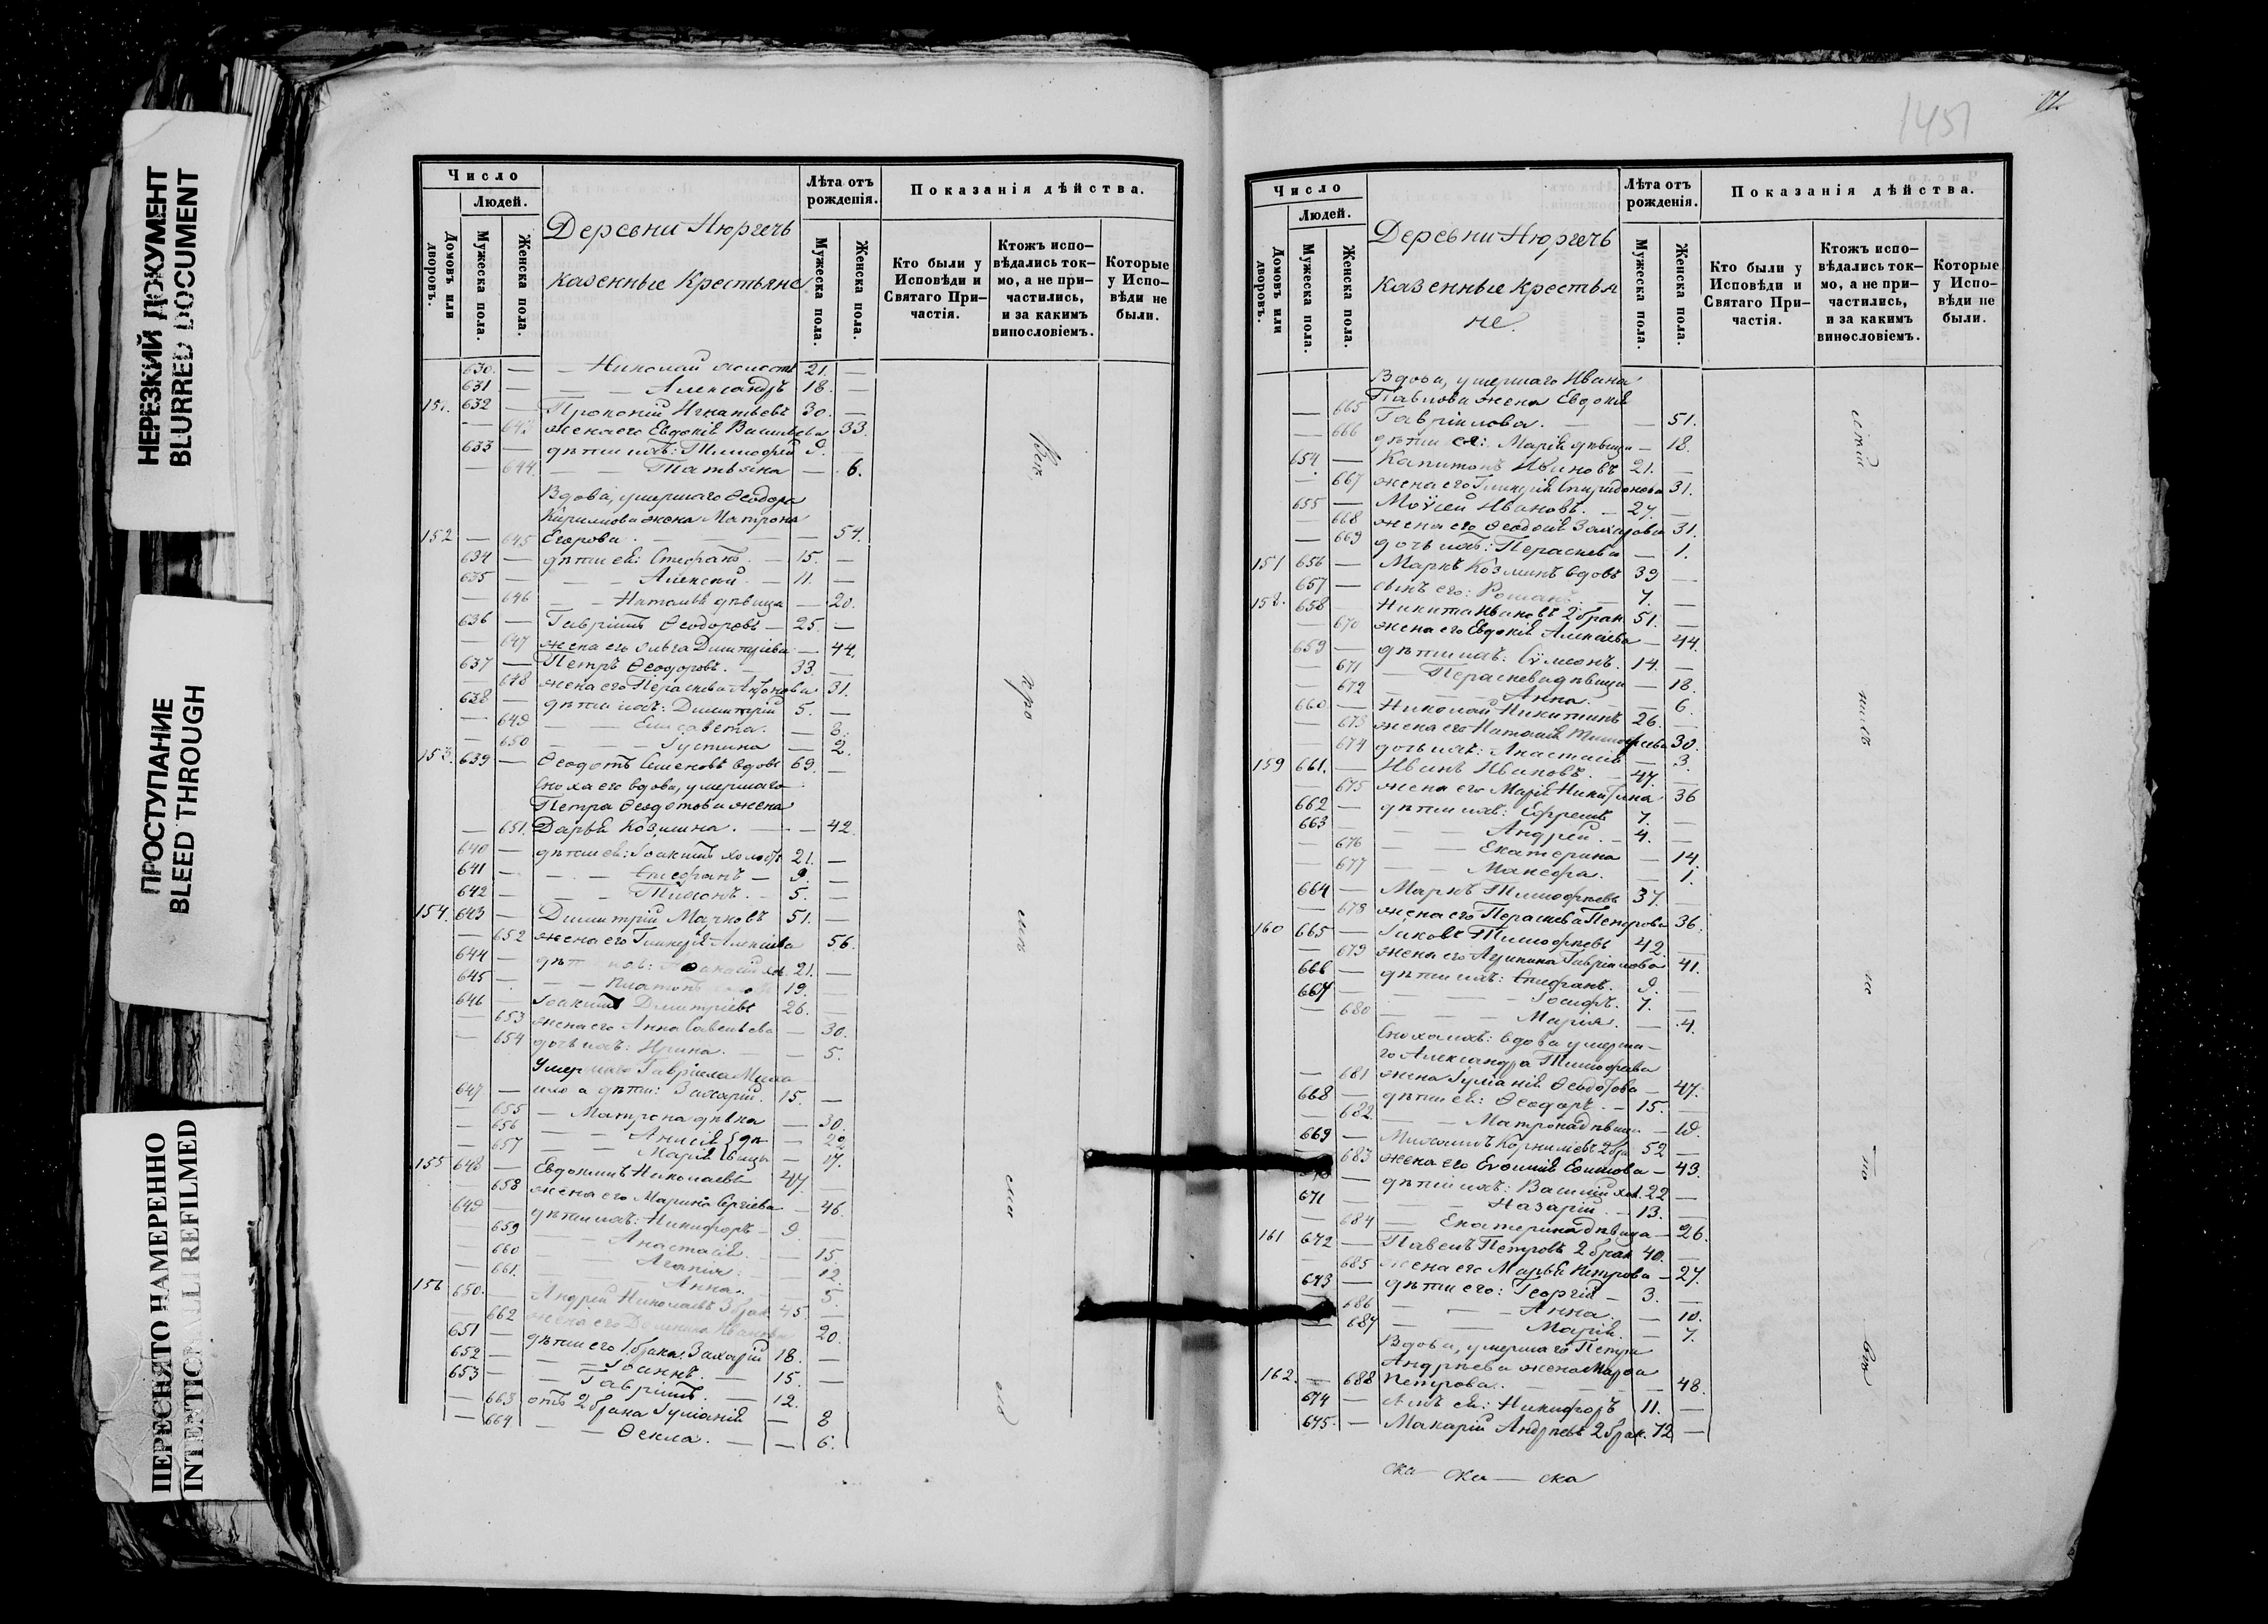 НЕРЕЗКИЙ ДОКУМЕНТ
BLURRED DOCUMENT
ПРОСТУПАНИЕ
BLEED THROUGH
ПЕРЕСНЯТО НАМЕРЕННО
INTENTIONALLI REFILMED
Число
Людей.
Домовъ или дворовъ.
Мужеска пола.
Женска пола.
Деревни Нюргечь
казенные Крестьяне
Лѣта отъ рожденія.
Мужеска пола.
Женска пола.
Показанія дѣйства.
Кто были у Исповѣди и Святаго При-частія.
Ктожъ испо-вѣдались ток-мо, а не при-частились, и за какимъ винословіемъ.
Которые у Испо-вѣди не были.
630. — Николай холостъ 21. —
631 — Александръ 18. —
151. 632 — Прокопій Игнатьевъ 30. —
— 643 жена его Евдокія Васильева 33.
633 — дѣти ихъ: Тимофей 9. —
— 644. Татьяна — 6.
Вдова, умершаго Ѳеодора
Кирилова жена Матрона
152 — 645 Егорова. — 54.
634 — дѣти ея: Стефанъ — 15. —
635 — Алексій — 11. —
— 646 — Наталья дѣвица — 20.
636 — Гавріилъ Ѳеодоровъ — 25. —
— 647 жена его Ольга Димитріева — 44.
637 — Петръ Ѳеодоровъ. 33. —
— 648 жена его Пераскева Антонова 31.
638 — дѣти ихъ: Димитрій 5. —
— 649 — Елисавета. — 8.
— 650 — Іустина — 2.
153. 639 — Ѳеодотъ Семеновъ вдовъ 69. —
Сноха его вдова, умершаго
Петра Ѳеодотова жена
— 651. Дарья Козмина. — 42.
640 — дѣти ея: Іоакимъ холостъ 21. —
641 — Стефанъ — 9. —
642 — Тимонъ. — 5. —
154. 643 — Димитрій Марковъ 51. —
— 652 жена его Гликерія Алексіева 56.
644 — хол. 21. —
645 — Платонъ 19. —
646 — Іоакимъ Димитріевъ 26. —
— 653 жена его Анна Савельева — 30.
— 654 дочь ихъ: Ирина. — 5.
Умершаго Гавріила Миха
647 — ило а дѣти: Захарій. 15. —
— 655 — Матрона дѣвка — 30.
— 656 — Анисія } дѣ — 22
— 657 — Марія } вицы — 17.
155 648 — Евдокимъ Николаевъ 47. —
— 658 жена его Марина Сергіева — 46.
649 — дѣти ихъ: Никифоръ — 9 —
— 659 — Анастасія. — 15.
— 660 — Агапія — 12.
— 661. — Анна. — 5.
156 650. — Андрей Николаевъ 3 брак. 45. —
— 662 жена его Домника Иванова 20.
651 — дѣти его 1 брака: Захарій 18. —
652 — Іоаннъ. — 15. —
653 — Гавріилъ. — 12. —
— 663 отъ 2 брака Іуліанія — 8
— 664 — Ѳекла. — 6.
1451
Число
Людей.
Домовъ или дворовъ.
Мужеска пола.
Женска пола.
Деревни Нюргечь
казенные крестья
не.
Лѣта отъ рожденія.
Мужеска пола.
Женска пола.
Показанія дѣйства.
Кто были у Исповѣди и Святаго При-частія.
Ктожъ испо-вѣдались ток-мо, а не при-частились, и за какимъ винословіемъ.
Которые у Испо-вѣди не были.
Вдова, умершаго Ивана
Павлова жена Евдокія
— 665 Гавріилова. — 51.
— 666 дѣти ея: Марія дѣвица — 18.
654 — Капитонъ Ивановъ 21. —
— 667 жена его Гликерія Спиридонова 31.
655 — Моѵсей Ивановъ. — 27. —
— 668 жена его Ѳеодосія Захарова 31.
— 669 дочь ихъ: Пераскева — 1.
157 656 — Маркъ Козминъ вдовъ 39 —
657 — сынъ его: Романъ — 7. —
158. 658 — Никита Ивановъ 2 брак. 51. —
— 670 жена его Евдокія Алексіева — 44.
659 — дѣти ихъ: Сѵмеонъ. 14. —
— 671 — Пераскева дѣвица — 18.
— 672 — Анна. — 6.
660 — Николай Никитинъ 26. —
— 673 жена его Наталія Тимофеева 30.
— 674 дочь ихъ: Анастасія — 3.
159 661. — Иванъ Ивановъ. — 47. —
— 675 жена его Марія Никитина 36
662 — дѣти ихъ: Ефремъ 7. —
663 — Андрей. — 4. —
— 676 — Екатерина — 14.
— 677 — Манефа. — 1.
664 — Маркъ Тимофеевъ 37. —
— 678 жена его Пераскева Петрова 36.
160 665 — Іаковъ Тимофеевъ 42. —
— 679 жена его Акилина Гавріилова 41.
666 — дѣти ихъ: Стефанъ. 9. —
667 — Іосифъ. 7. —
— 680 — Марія. — 4.
Сноха ихъ: вдова умерша—
го Александра Тимофеева
— 681 жена Іуліанія Ѳеодотова — 47.
668 — дѣти ея: Ѳеодоръ. — 15. —
— 682. — Матрона дѣвица —
669 — Михаилъ Корниліевъ 2 бра. 52 —
— 683 жена его Евфимія Ефимова — 43.
— дѣти ихъ: Василій хол. 22 —
671 — Назарій. — 13. —
— 684 — Екатерина дѣвица — 26.
161 672 — Павелъ Петровъ 2 брак 40. —
— 685 жена его Марья Петрова — 27.
673 — дѣти его: Георгій — 3. —
— 686 — Анна. — 10.
— 687 — Марія. — 7.
Вдова, умершаго Петра
Андреева жена Марѳа
162. — 688 Петрова. — 48.
674 — сынъ ея: Никифоръ 11. —
675. — Макарій Андреевъ 2 брак. 72 —
ска — ска — ска